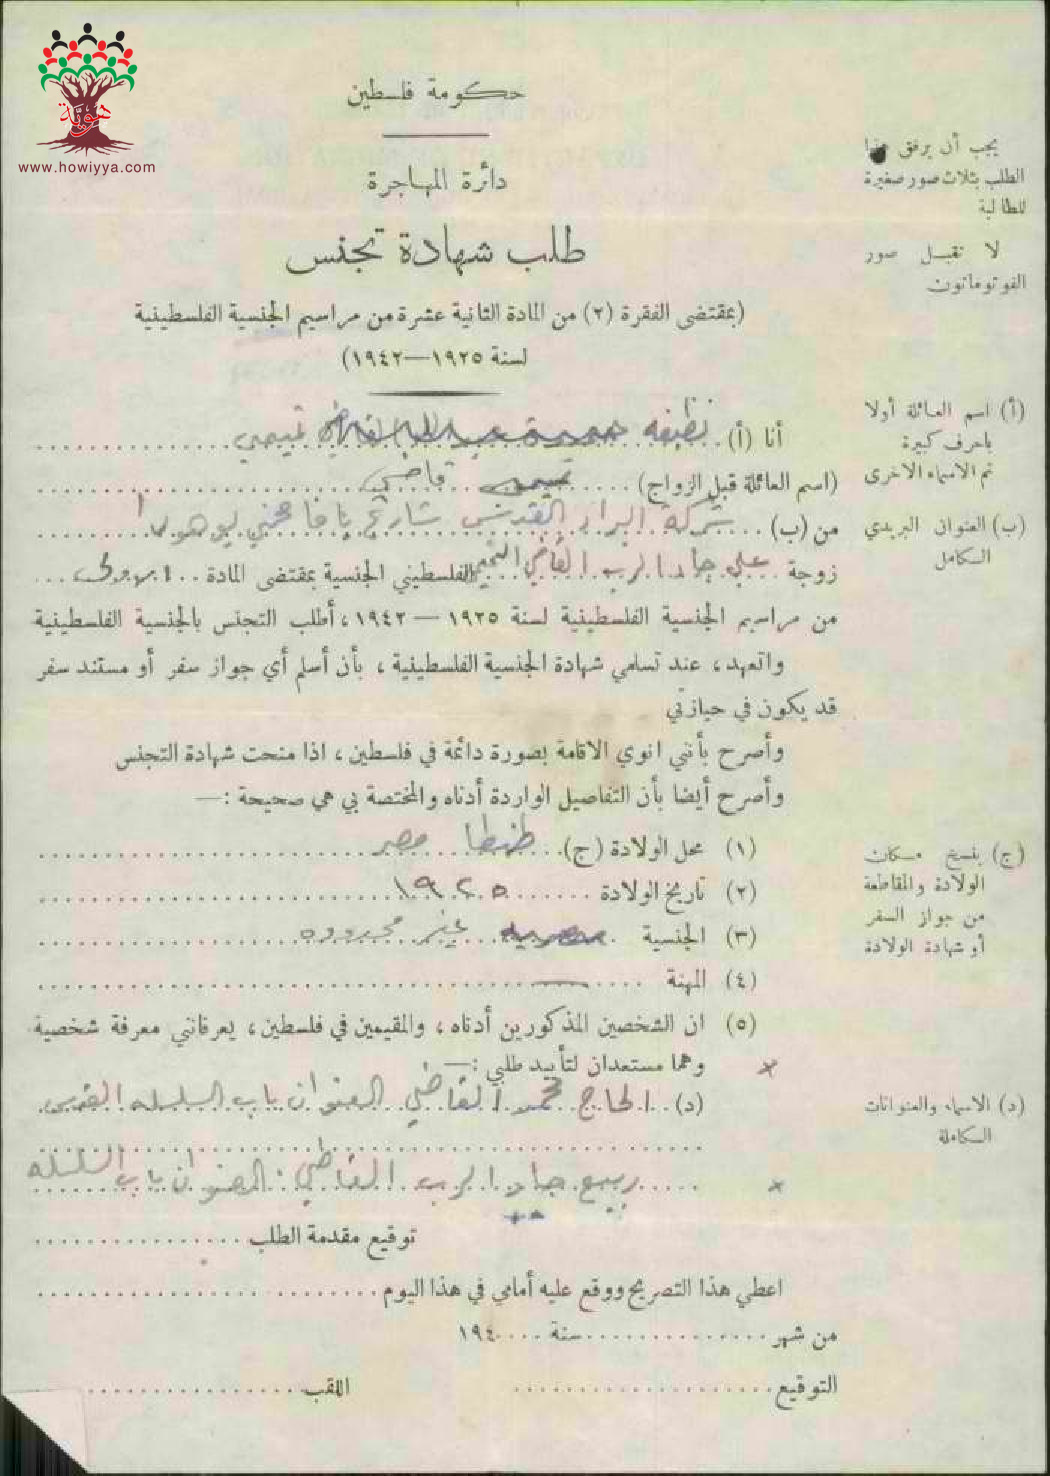 هوية
www.howiyya.com
حكومة فلسطين
دائرة المهاجرة
يجب أن يرفق هذا
الطلب بثلاث صور صغيرة
للطالبة
لا تقبل صور
الفوتوماتون
طلب شهادة تجنس
(بمقتضى الفقرة (٢) من المادة الثانية عشرة من مراسيم الجنسية الفلسطينية
لسنة ١٩٢٥—١٩٤٢)
(أ) اسم العائلة أولا
باحرف كبيرة
ثم الاسماء الاخرى
أنا (أ) نظيفه تميمي
(اسم العائلة قبل الزواج) قاضي
(ب) العنوان البريدي
الكامل
من (ب) شركة البراد القدس شارع يافا
زوجة علي جاد الرب القاضي التميمي الفلسطيني الجنسية بمقتضى المادة
من مراسيم الجنسية الفلسطينية لسنة ١٩٢٥ — ١٩٤٢، أطلب التجنس بالجنسية الفلسطينية
واتعهد، عند تسلمي شهادة الجنسية الفلسطينية، بأن أسلم أي جواز سفر أو مستند سفر
قد يكون في حيازتي
وأصرح بأنني انوي الاقامة بصورة دائمة في فلسطين، اذا منحت شهادة التجنس
وأصرح أيضا بأن التفاصيل الواردة أدناه والمختصة بي هي صحيحة :—
(ج) ينسخ مكان
الولادة والمقاطعة
من جواز السفر
أو شهادة الولادة
(١) محل الولادة (ج) طنطا مصر
(٢) تاريخ الولادة ١٩٢٥
(٣) الجنسية مصريه غير محدوده
(٤) المهنة —
(٥) ان الشخصين المذكورين أدناه، والمقيمين في فلسطين، يعرفانني معرفة شخصية
وهما مستعدان لتأييد طلبي :—
(د) الاسماء والعنوانات
الكاملة
(د) الحاج محمد القاضي العنوان باب السلسله القدس
ربيع جاد الرب القاضي العنوان باب السلسله
توقيع مقدمة الطلب
اعطي هذا التصريح ووقع عليه أمامي في هذا اليوم
من شهر سنة ١٩٤
التوقيع اللقب